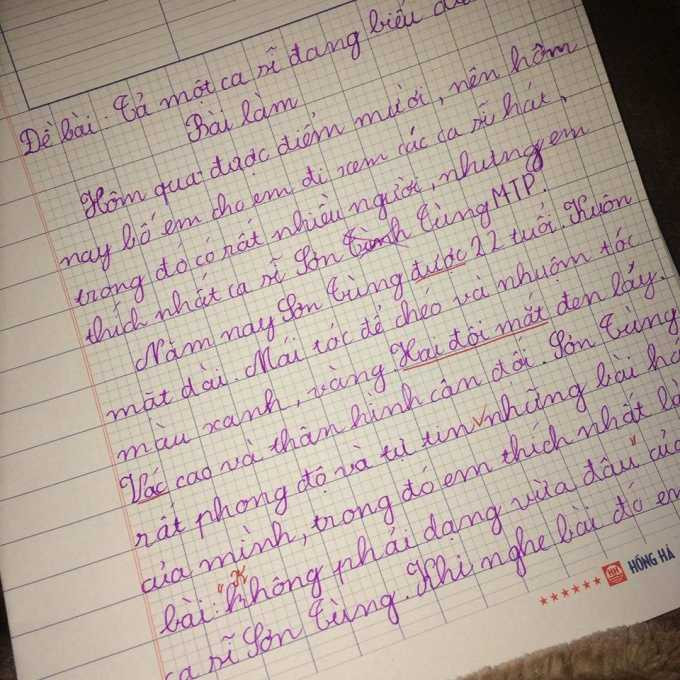 Đề bài: Tả một ca sĩ đang biểu
Bài làm
Hôm qua được điểm mười, nên hôm
nay bố em cho em đi xem các ca sĩ hát,
trong đó có rất nhiều người, nhưng em
thích nhất ca sĩ Sơn Tùng MTP.
Năm nay Sơn Tùng được 22 tuổi. Khuôn
mặt dài. Mái tóc để chéo và nhuộm tóc
màu xanh, vàng Hai đội mắt đen láy.
Vác cao và thân hình cân đối. Sơn Tùng
rất phong độ và tự tin những bài há
của mình, trong đó em thích nhất là
bài: "không phải dạng vừa đâu" của
ca sĩ Sơn Tùng. Khi nghe bài đó em
HH HỒNG HÀ